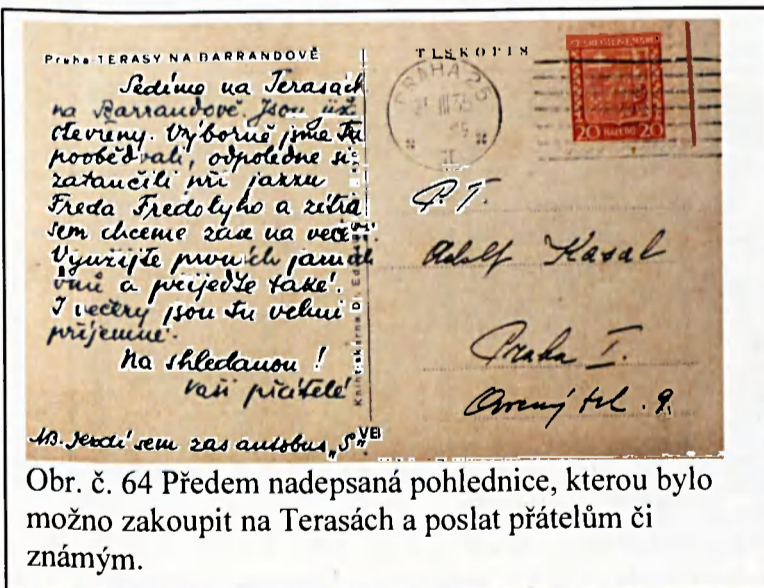 Praha TERASY NA BARRANDOVĚ
Sedíme na Terasách
na Barrandově. Jsou už
otevřeny. Výborně jsme tu
poobědvali, odpoledne si
zatančili při jazzu
Freda Fredolyho a zítra
sem chceme zase na več
Využijte prvních jarních
dnů a přijeďte také.
I večery jsou tu velmi
příjemné.
Na shledanou!
Vaši přátelé
NB. Jezdí sem zas autobus „S“
TISKOPIS
PRAHA 25
III 35
ČESKOSLOVENSKO
20 HALÉŘŮ 20
P. T.
Adolf Kasal
Praha I.
Ovocný trh. 9.
Obr. č. 64 Předem nadepsaná pohlednice, kterou bylo
možno zakoupit na Terasách a poslat přátelům či
známým.